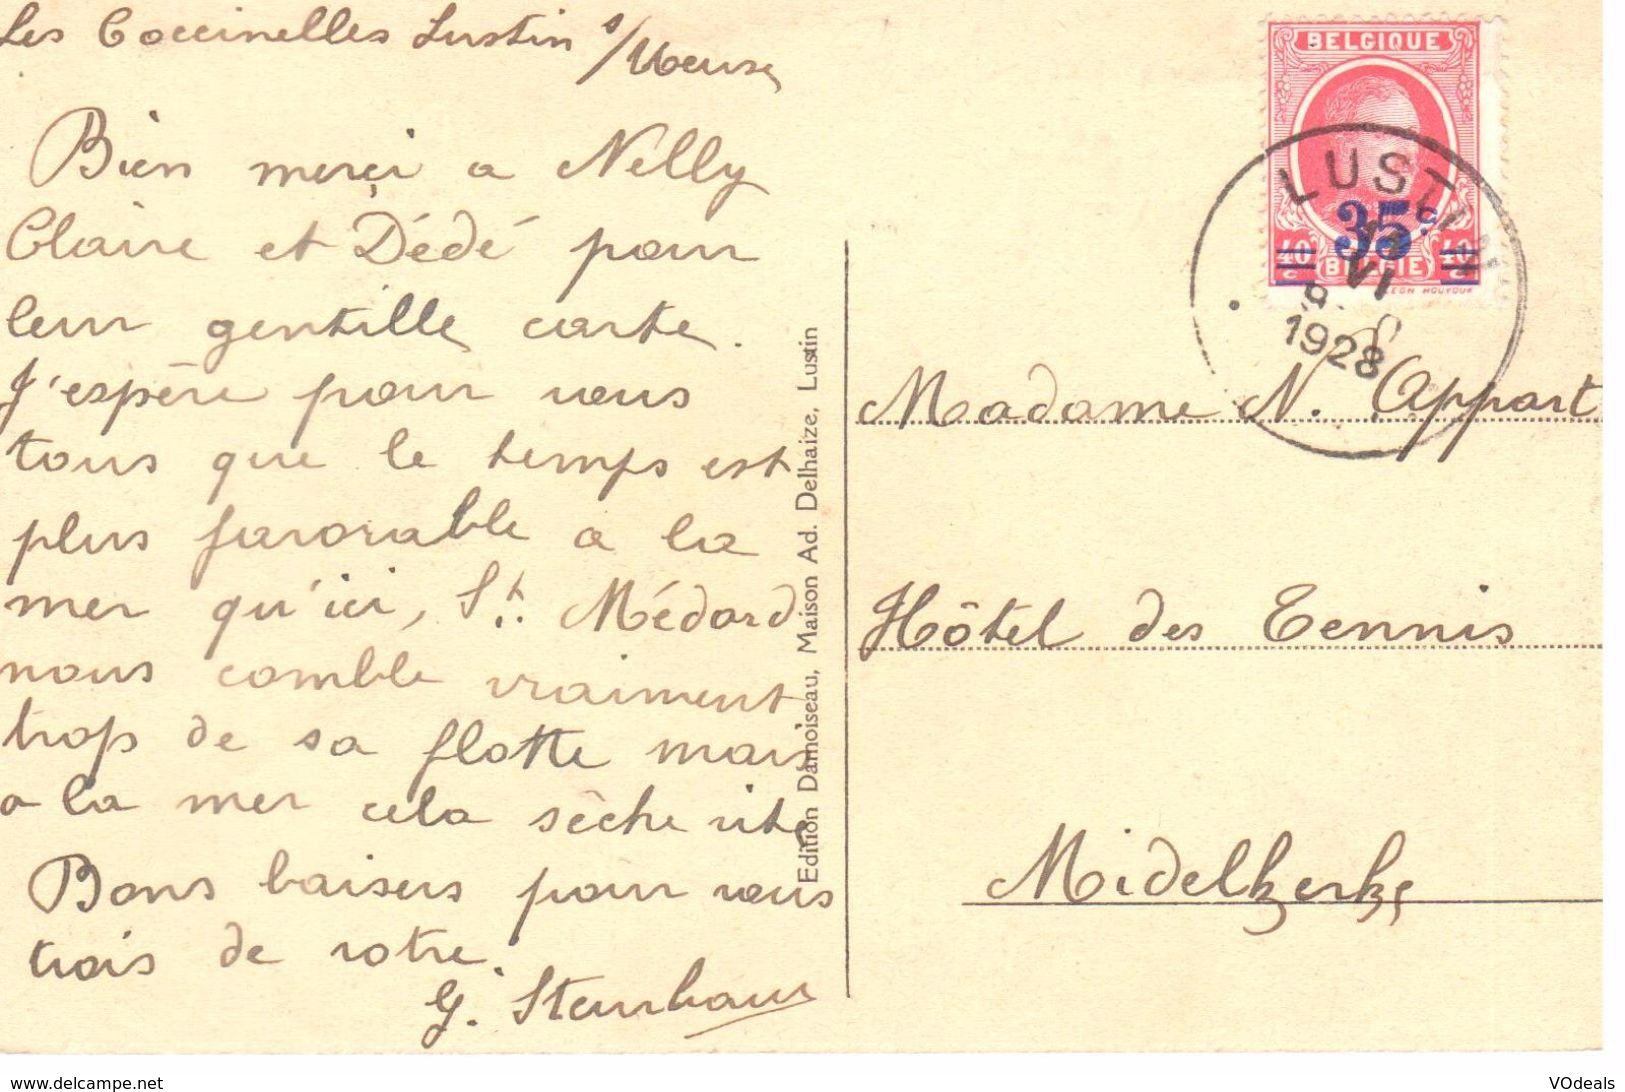 Les Coccinelles Lustin s/Meuse
Bien merçi a Nelly
Claire et Dédé pour
leur gentille carte.
J'espère pour vous
tous que le temps est
plus favorable a la
mer qu'ici, St. Médard
nous comble vraiment
trop de sa flotte mais
a la mer cela sèche vite
Bons baisers pour vous
trois de votre.
G. Steinhaus
Edition Damoiseau, Maison Ad. Delhaize, Lustin
BELGIQUE
35c
40c BELGIE 40c
LEON HOUYOUX
LUSTIN
VI
1928
Madame N. Appart
Hôtel des Tennis
Midelkerke
www.delcampe.net
VOdeals